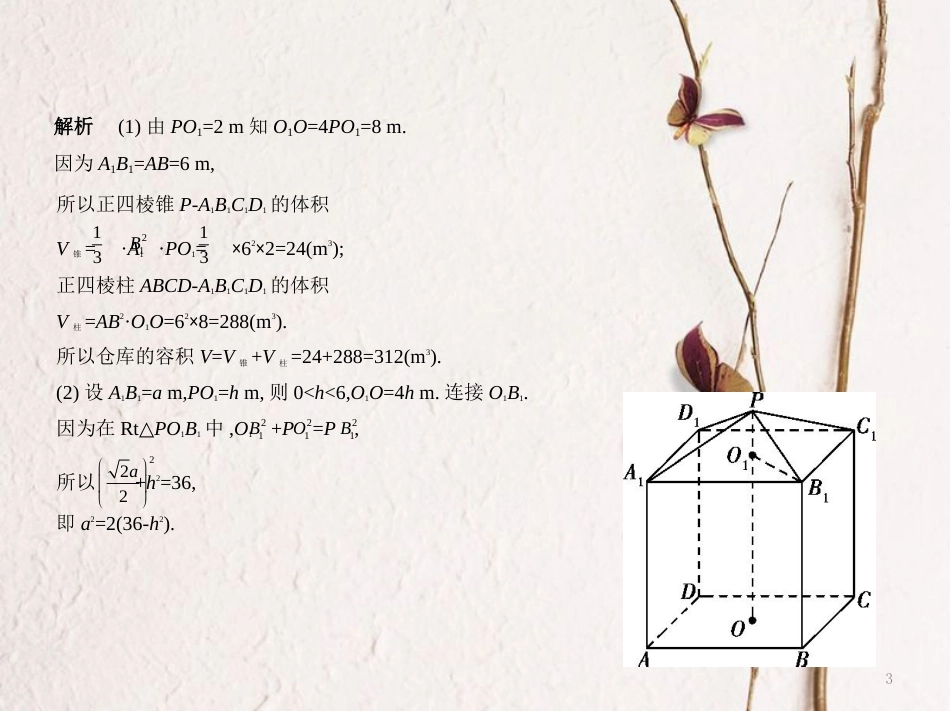 解析 (1) 由 PO₁=2 m 知 O₁O=4PO₁=8 m.
因为 A₁B₁=AB=6 m,
所以正四棱锥 P-A₁B₁C₁D₁ 的体积
V 锥 = 1/3 ·A₁B₁² ·PO₁= 1/3 ×6²×2=24(m³);
正四棱柱 ABCD-A₁B₁C₁D₁ 的体积
V 柱 =AB²·O₁O=6²×8=288(m³).
所以仓库的容积 V=V 锥 +V 柱 =24+288=312(m³).
(2) 设 A₁B₁=a m,PO₁=h m, 则 0<h<6,O₁O=4h m. 连接 O₁B₁.
因为在 Rt△PO₁B₁ 中 ,O₁B₁² +PO₁²=P B₁²,
所以 (√2a/2)² +h²=36,
即 a²=2(36-h²).
P
D₁
C₁
O₁
A₁
B₁
D
C
O
A
B
3